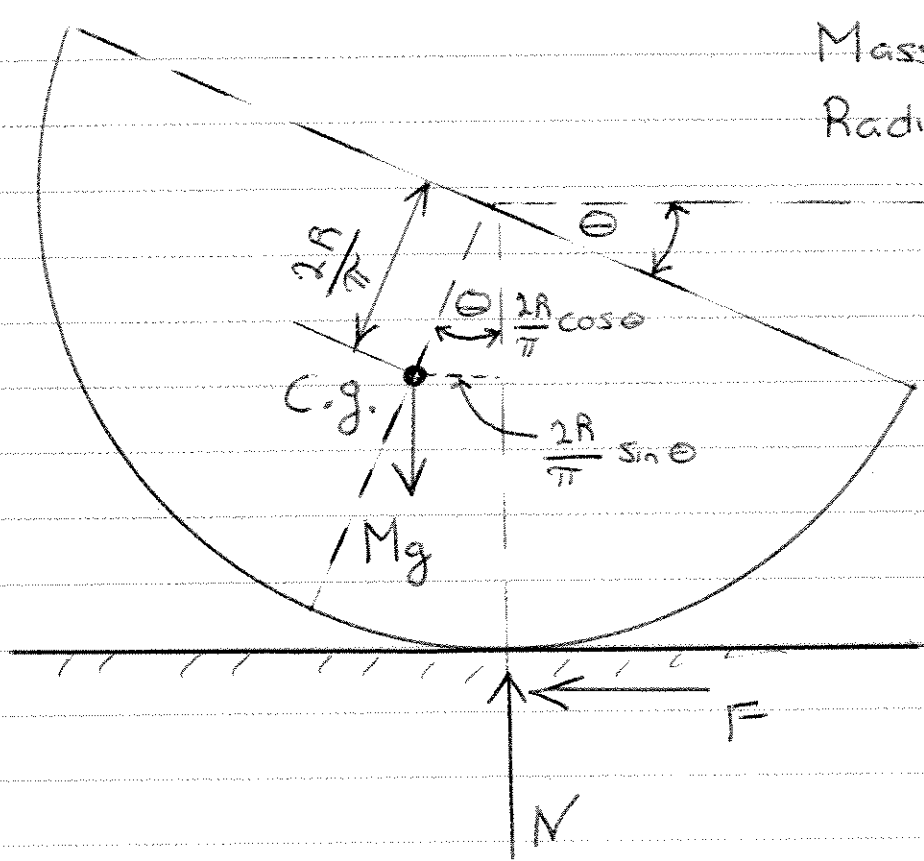 Mass
Radi
Θ
2R/π
Θ
2R/π cos θ
C.g.
2R/π sin Θ
Mg
F
N